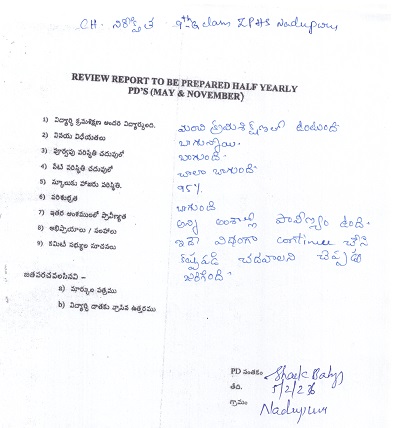 CH. నిరీక్షిత 9th class ZPHS Nadupuru
REVIEW REPORT TO BE PREPARED HALF YEARLY
PD'S (MAY & NOVEMBER)
1) విద్యార్థి క్రమశిక్షణ అందరి విద్యార్థులంది. మంచి క్రమశిక్షణలో ఉంటుంది
2) వినయ విధేయతలు బాగున్నాయి.
3) పూర్వపు పరిస్థితి చదువులో బాగుంది.
4) నేటి పరిస్థితి చదువులో చాలా బాగుంది
5) స్కూలుకు హాజరు పరిస్థితి. 95%
6) పరిశుభ్రత బాగుంది
7) ఇతర అంశములలో ప్రావీణ్యత అన్ని అంశాల్లో ప్రావీణ్యం ఉంది.
8) అభిప్రాయాలు / సలహాలు ఇదే విధంగా continue చేసి
9) కమిటీ సభ్యుల సూచనలు కష్టపడి చదవాలని చెప్పడం
జరిగింది.
జతపరచవలసినవి –
a) మార్కుల పత్రము
b) విద్యార్థి దాతకు వ్రాసిన ఉత్తరము
PD సంతకం Shaik
తేది. 5/2/26
గ్రామం Nadupuru